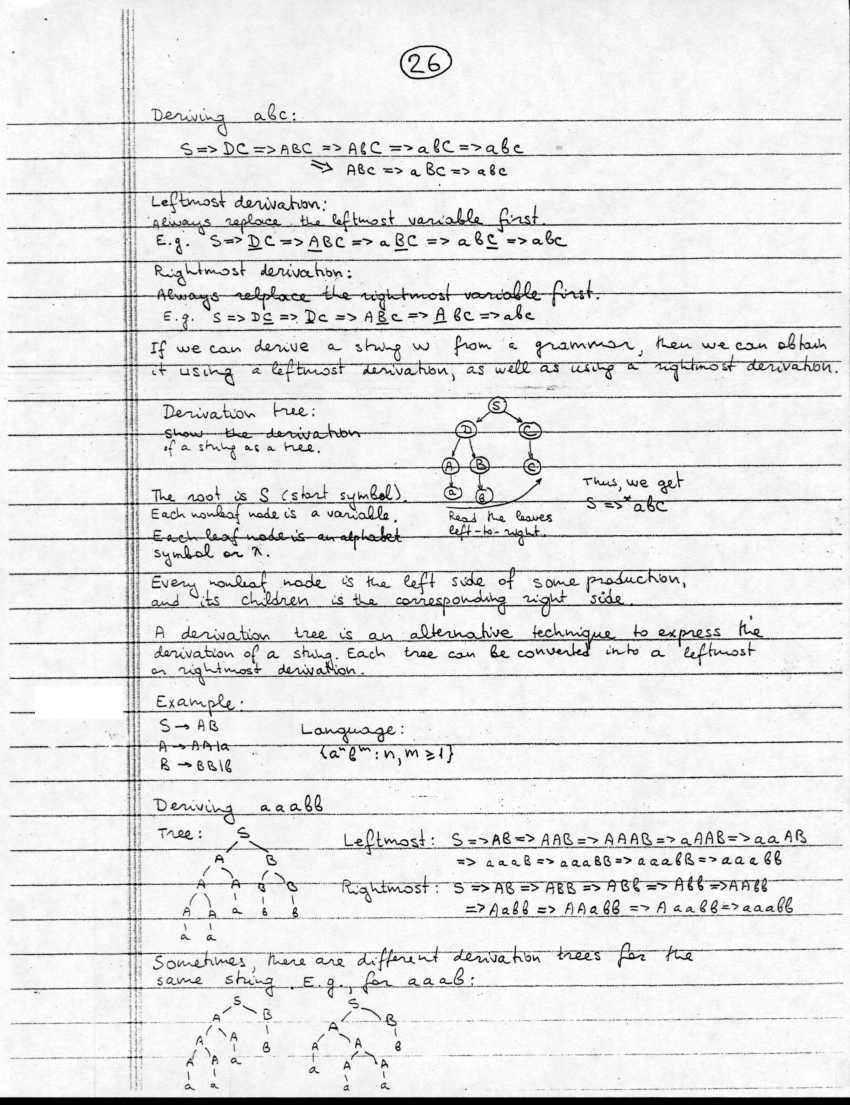 26
Deriving abc:
S => DC => ABC => AbC => abC => abc
=> ABc => aBc => abc
Leftmost derivation:
Always replace the leftmost variable first.
E.g. S => DC => ABC => aBC => abC => abc
Rightmost derivation:
Always relplace the rightmost variable first.
E.g. S => DC => Dc => ABc => Abc => abc
If we can derive a string w from a grammar, then we can obtain
it using a leftmost derivation, as well as using a rightmost derivation.
Derivation tree:
Show the derivation
of a string as a tree.
S
D C
A B c
a b
Read the leaves
left-to-right.
Thus, we get
S =>* abc
The root is S (start symbol).
Each nonleaf node is a variable.
Each leaf node is an alphabet
symbol or λ.
Every nonleaf node is the left side of some production,
and its children is the corresponding right side.
A derivation tree is an alternative technique to express the
derivation of a string. Each tree can be converted into a leftmost
or rightmost derivation.
Example:
S → AB
A → AA|a
B → BB|b
Language:
{aⁿbᵐ : n, m ≥ 1}
Deriving aaabb
Tree:
S
A B
A A B B
A A a b b
a a
Leftmost: S => AB => AAB => AAAB => aAAB => aaAB
=> aaaB => aaaBB => aaabB => aaabb
Rightmost: S => AB => ABB => ABb => Abb => AAbb
=> Aabb => AAabb => Aaabb => aaabb
Sometimes, there are different derivation trees for the
same string. E.g., for aaab:
S
A B
A A b
A A a
a a
S
A B
A A b
a A A
a a